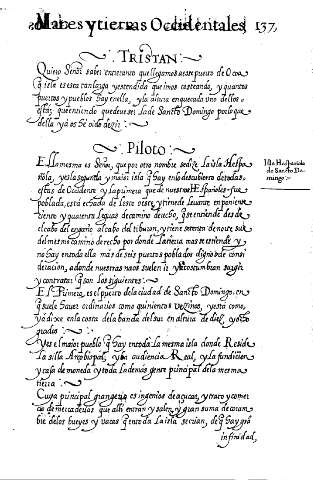 Mares y tierras Occidentales 137,
TRISTAN
Quiero Señor saber en tretanto que llegamos a este puerto de Ocoa
que isla es esta tan larga y estendida que imos costeando, y quantos
puertos y pueblos hay en ella, y la altura en que cada uno dellos
esta; que entiendo que deue ser la de Sancto Domingo por lo que
della ya os he oido dezir
PILOTO
Ella mesma es Señor, que por otro nombre se dize La isla Hespa
ñola, y es la segunda y maior isla que hay en lo descubierto de todas
estas de Occidente y la primera que de nuestros Hespañoles fue
poblada, está echada de Leste oeste y tiene de Leuante en poniente
ciento y quarenta leguas de camino derecho, que se entiende desde
el cabo del engaño al cabo del tiburon, y tiene setenta de norte sur
del mesmo camino derecho por donde la tierra mas se estiende y
no hay en toda ella mas de seis puertos poblados dignos de consi
deracion, a donde nuestras naos suelen ir y acostumbran surgir
y contratar que son los siguientes
El Primero, es el puerto de la ciudad de Sancto Domingo, en
que suele hauer ordinarios como quinientos vezinos, y está como,
yo dixe en la costa de la banda del sur en altura de diez, y ocho
grados
Y es el maior pueblo que hay en toda la mesma isla donde Reside
la silla Arçobispal, y la audiencia Real, y la fundicion
y casa de moneda y toda la demas gente principal de la mesma
tierra
Cuya principal grangeria es ingenios de açucar, y trato y comer
cio de mercaderias que alli entran y salen, y gran suma de coram
bre de los bueyes y vacas que en toda la isla se crian, de que hay grã
infinidad,
Isla Hespañola
de Sancto Do-
mingo